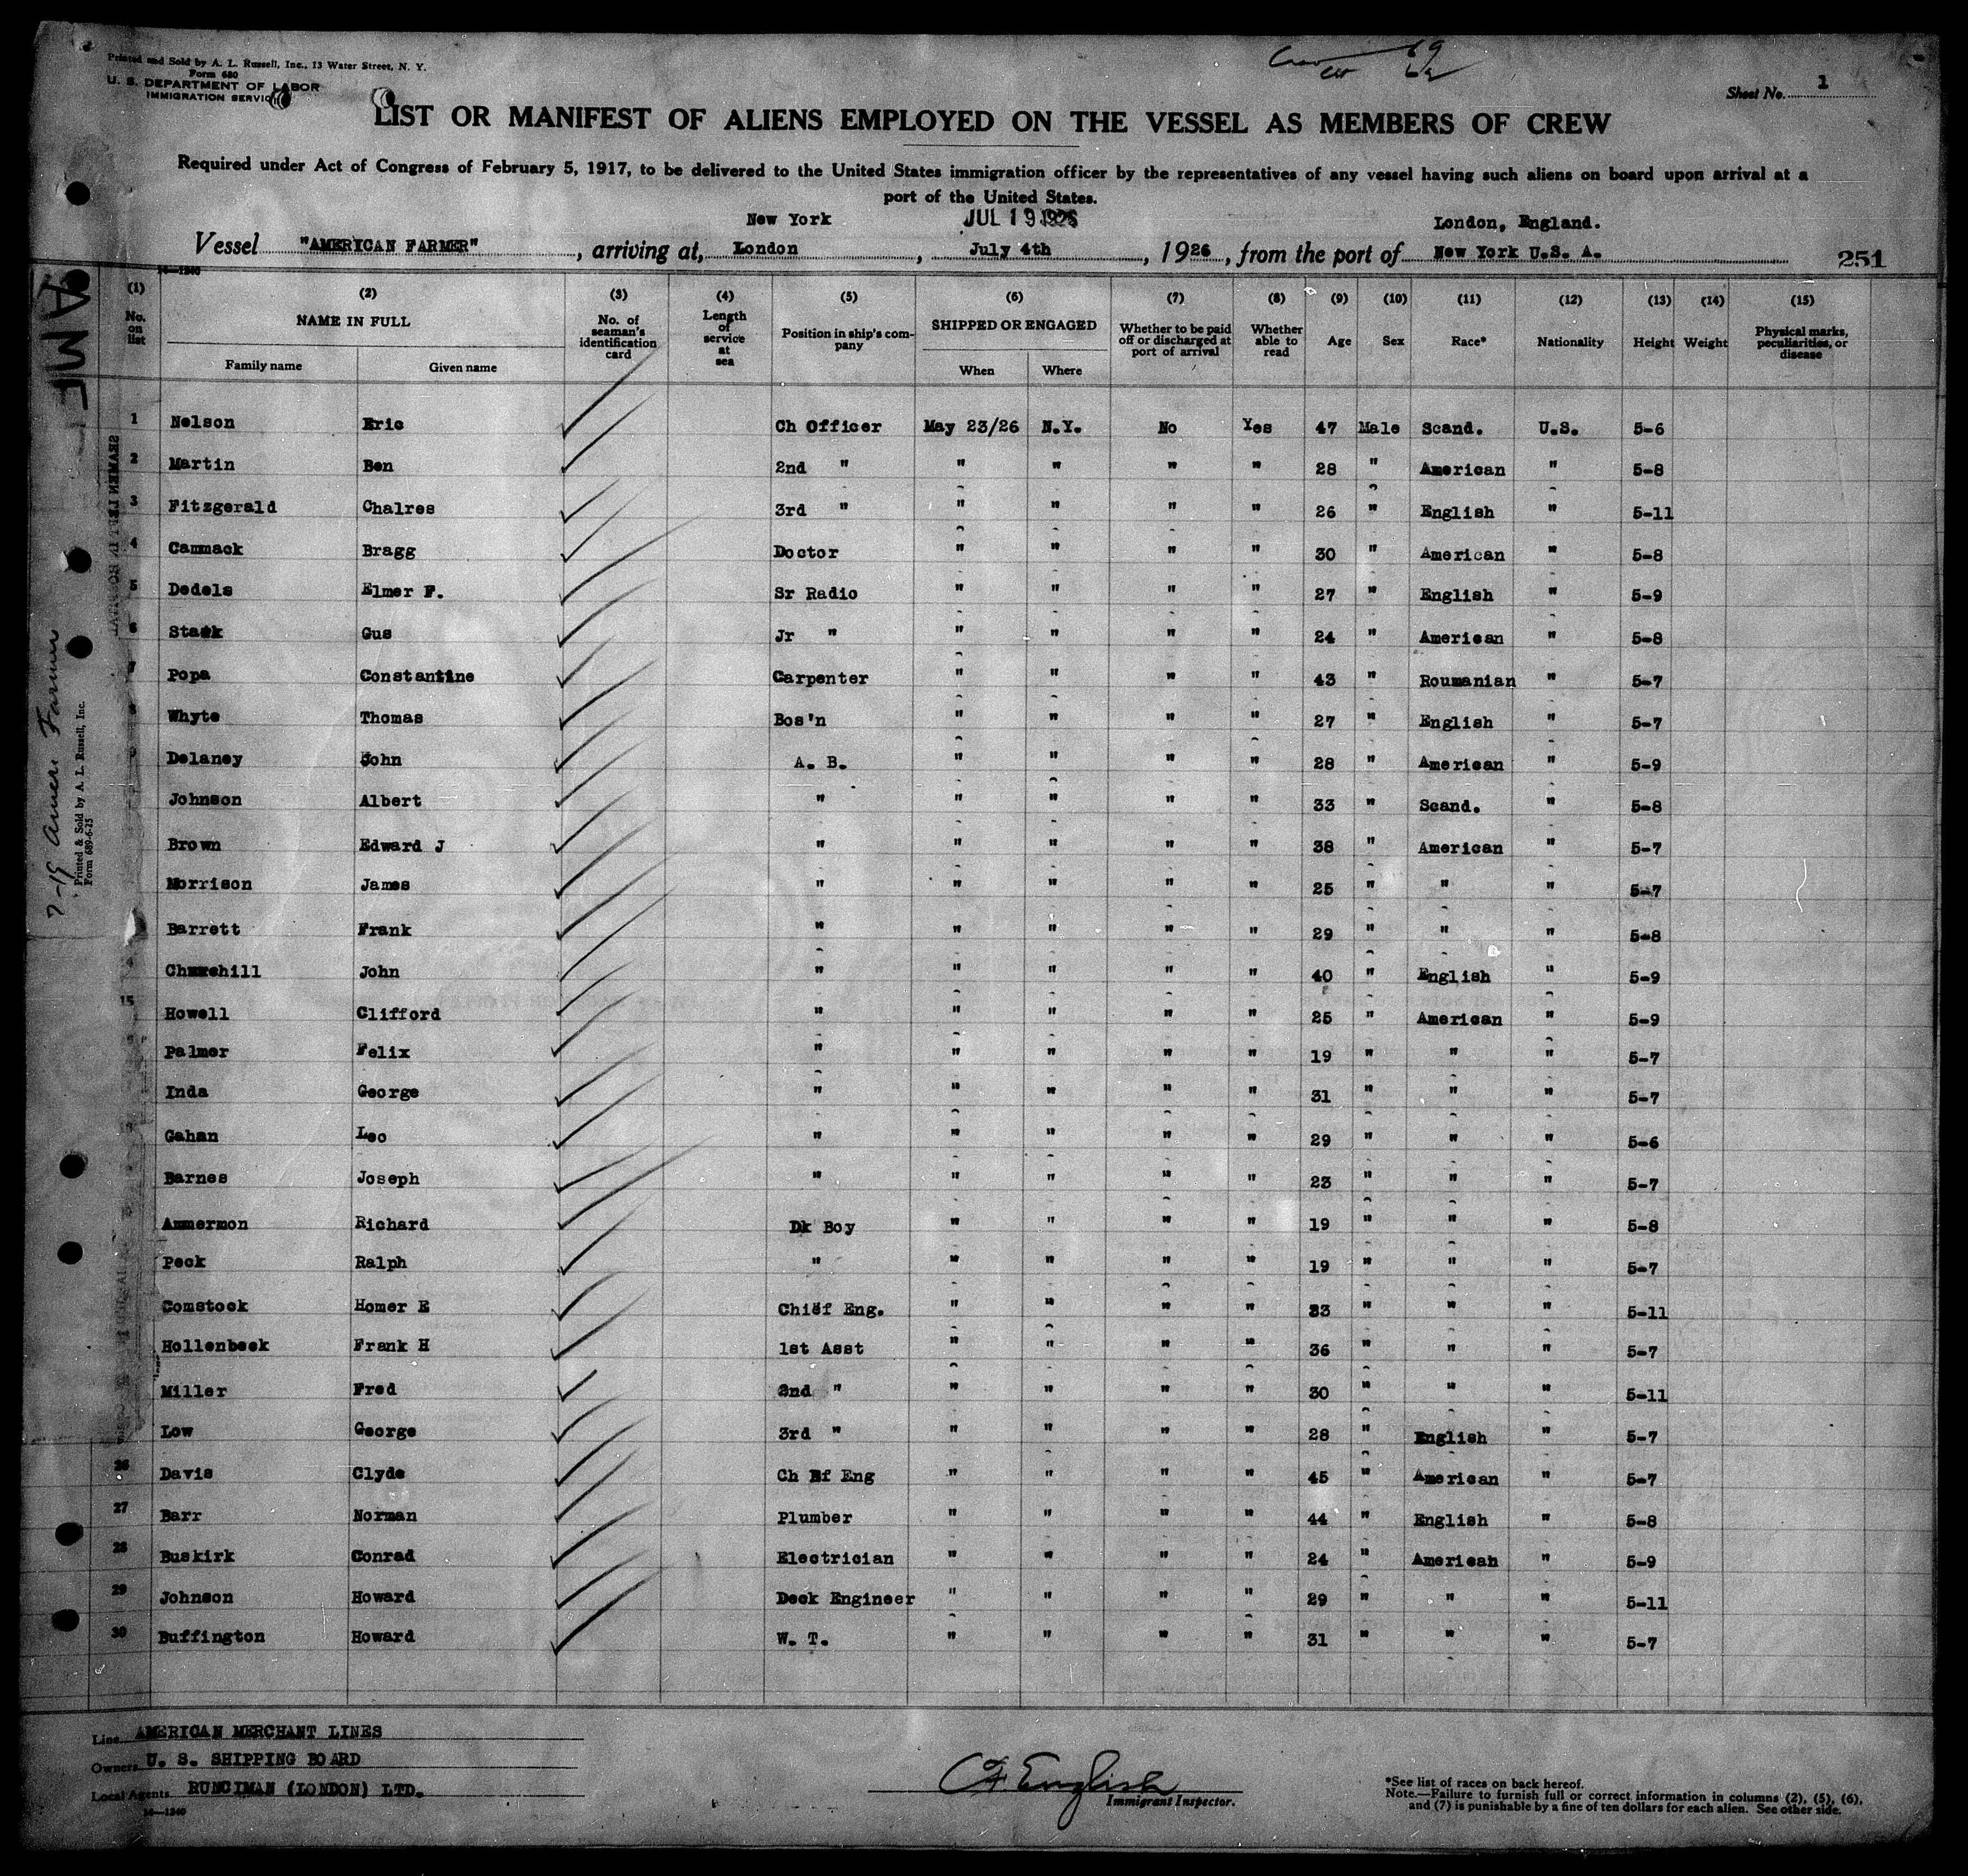 Printed and Sold by A. L. Russell, Inc., 13 Water Street, N. Y.
Form 680
U. S. DEPARTMENT OF LABOR
IMMIGRATION SERVICE
Sheet No. 1
LIST OR MANIFEST OF ALIENS EMPLOYED ON THE VESSEL AS MEMBERS OF CREW
Required under Act of Congress of February 5, 1917, to be delivered to the United States immigration officer by the representatives of any vessel having such aliens on board upon arrival at a
port of the United States.
New York JUL 19 1926 London, England.
Vessel "AMERICAN FARMER", arriving at, London, July 4th, 1926, from the port of New York U.S. A. 251
14—1240
(1) (2) (3) (4) (5) (6) (7) (8) (9) (10) (11) (12) (13) (14) (15)
No. on list NAME IN FULL Family name Given name No. of seaman's identification card Length of service at sea Position in ship's company SHIPPED OR ENGAGED When Where Whether to be paid off or discharged at port of arrival Whether able to read Age Sex Race* Nationality Height Weight Physical marks, peculiarities, or disease
1 Nelson Eric Ch Officer May 23/26 N.Y. No Yes 47 Male Scand. U.S. 5-6
2 Martin Ben 2nd " " " " " 28 " American " 5-8
3 Fitzgerald Chalres 3rd " " " " " 26 " English " 5-11
4 Cammack Bragg Doctor " " " " 30 " American " 5-8
5 Dedels Elmer F. Sr Radio " " " " 27 " English " 5-9
6 Stack Gus Jr " " " " " 24 " American " 5-8
7 Popa Constantine Carpenter " " " " 43 " Roumanian " 5-7
8 Whyte Thomas Bos'n " " " " 27 " English " 5-7
Delaney John A. B. " " " " 28 " American " 5-9
Johnson Albert " " " " " 33 " Scand. " 5-8
Brown Edward J " " " " " 38 " American " 5-7
Morrison James " " " " " 25 " " " 5-7
Barrett Frank " " " " " 29 " " " 5-8
Churchill John " " " " " 40 " English " 5-9
15 Howell Clifford " " " " " 25 " American " 5-9
Palmer Felix " " " " " 19 " " " 5-7
Inda George " " " " " 31 " " " 5-7
Gahan Leo " " " " " 29 " " " 5-6
Barnes Joseph " " " " " 23 " " " 5-7
Ammermon Richard Dk Boy " " " " 19 " " " 5-8
Peck Ralph " " " " " 19 " " " 5-7
Comstock Homer E Chief Eng. " " " " 33 " " " 5-11
Hollenbeck Frank H 1st Asst " " " " 36 " " " 5-7
Miller Fred 2nd " " " " " 30 " " " 5-11
Low George 3rd " " " " " 28 " English " 5-7
26 Davis Clyde Ch Rf Eng " " " " 45 " American " 5-7
27 Barr Norman Plumber " " " " 44 " English " 5-8
28 Buskirk Conrad Electrician " " " " 24 " American " 5-9
29 Johnson Howard Deck Engineer " " " " 29 " " " 5-11
30 Buffington Howard W. T. " " " " 31 " " " 5-7
AME
7-19 Amer. Farmer
Printed & Sold by A. L. Russell, Inc.
Form 689-6-25
Line AMERICAN MERCHANT LINES
Owners U. S. SHIPPING BOARD
Local Agents RUNCIMAN (LONDON) LTD.
14—1240
C F. English
Immigrant Inspector.
*See list of races on back hereof.
Note.—Failure to furnish full or correct information in columns (2), (5), (6),
and (7) is punishable by a fine of ten dollars for each alien. See other side.